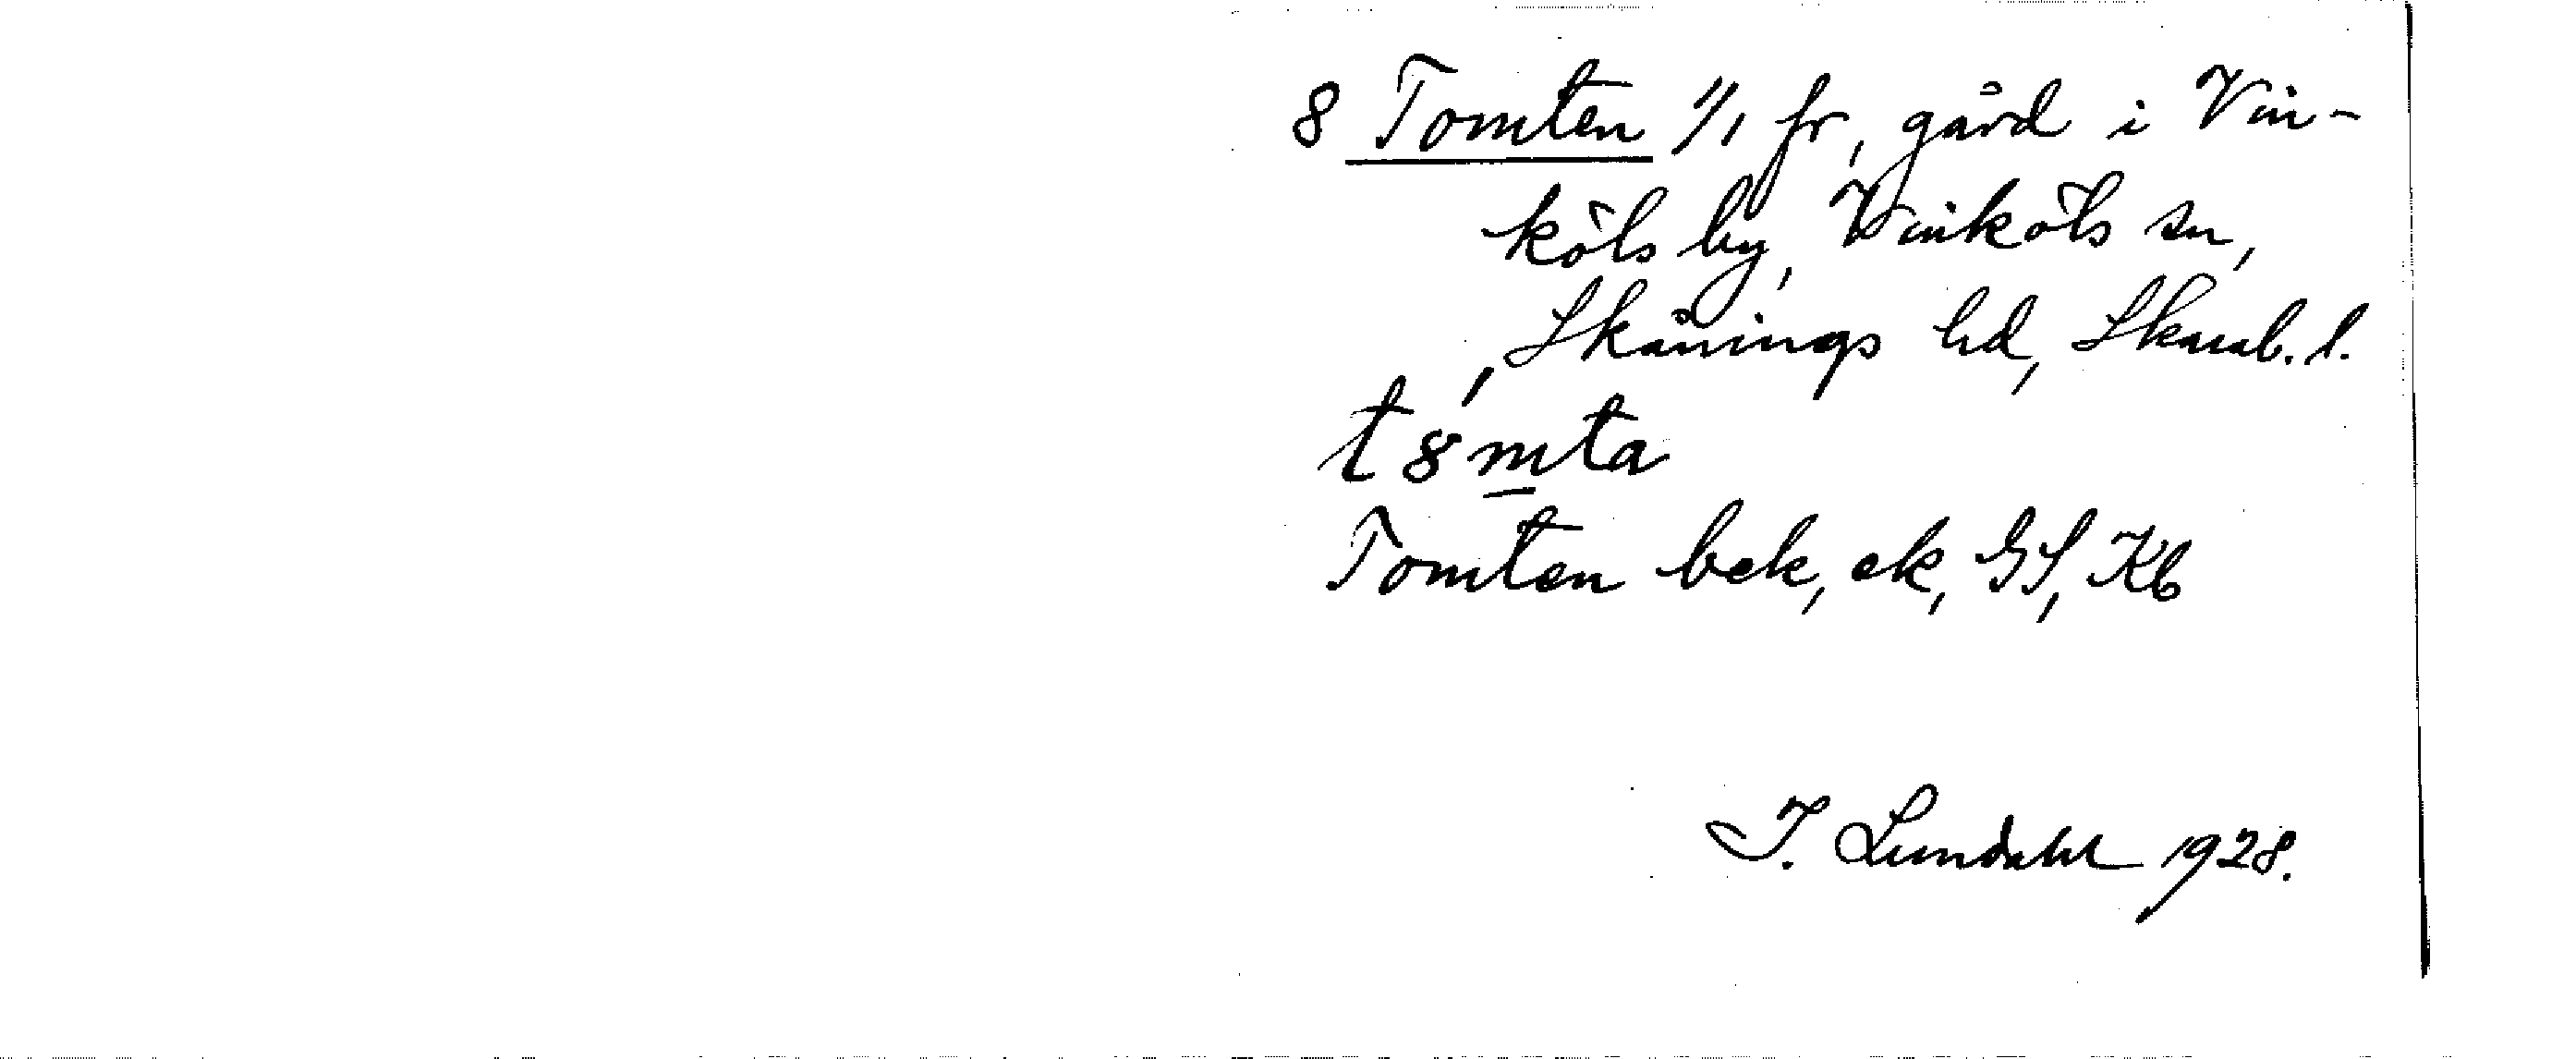 8 Tomten 1/1 fr, gård i Vin-
köls by, Vinköls sn,
Skånings hd, Skarab. l.
t8́mta
Tomten bek, ek, GS, Kb
I. Lundahl 1928.